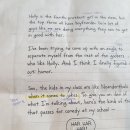 Holly is the fourth prettiest girl in the class, but
the top three all have boyfriends. So a lot of
guys like me are doing everything they can to get
in good with her.
I've been trying to come up with an angle to
separate myself from the rest of the goobers
who like Holly. And I think I finally figured it
out: humor.
See, the kids in my class are like Neanderthals
when it comes to jokes. To give you an idea of
what I'm talking about, here's the kind of thing
that passes for comedy at my school -
HAR HAR